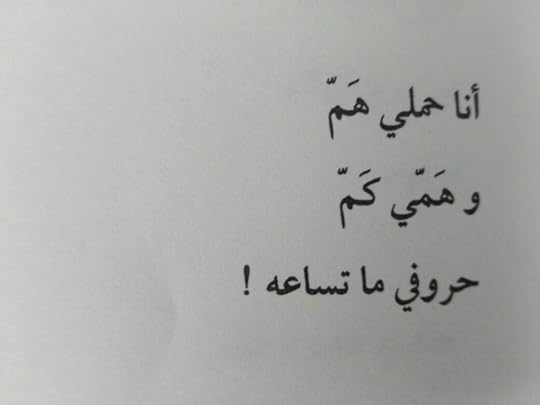 أنا حملي هَمّ
و هَمّي كَمّ
حروفي ما تساعه !